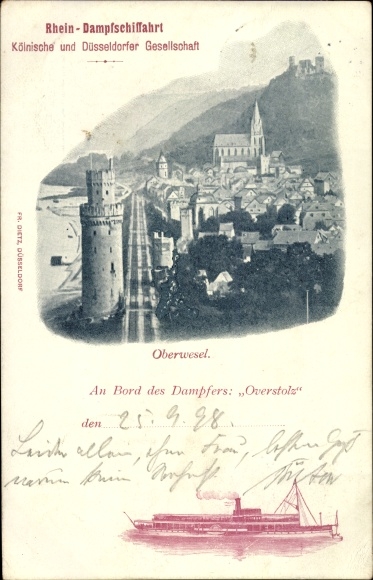 Rhein-Dampfschiffahrt
Kölnische und Düsseldorfer Gesellschaft
FR. DIETZ, DÜSSELDORF
Oberwesel.
An Bord des Dampfers: „Overstolz“
den 25.9.98.
Leider allein, ohne Frau, besten Gruß
warum kein